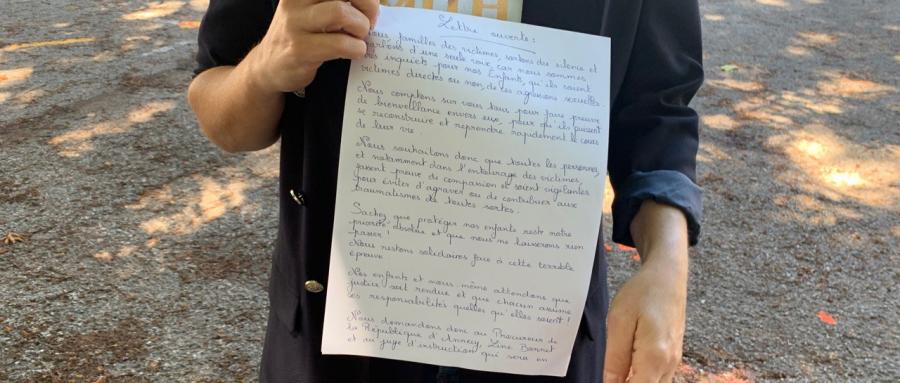 Lettre ouverte :
Nous familles des victimes, sortons du silence et
parlons d'une seule voix car nous sommes
très inquiets pour nos Enfants, qu'ils soient
victimes directes ou non, de ces agressions sexuelles.
Nous comptons sur vous tous pour faire preuve
de bienveillance envers eux, pour qu'ils puissent
se reconstruire et reprendre rapidement le cours
de leur vie.
Nous souhaitons donc que toutes les personnes,
et notamment dans l'entourage des victimes,
fassent preuve de compassion et soient vigilantes
pour éviter d'agraver ou de contribuer aux
traumatismes de toutes sortes.
Sachez que protéger nos enfants reste notre
priorité absolue et que nous ne laisserons rien
passer !
Nous restons solidaires face à cette terrible
épreuve
Nos enfants et nous-même attendons que
justice soit rendue et que chacun assume
ses responsabilités quelles qu'elles soient !
Nous demandons donc au Procureur de
la République d'Annecy, Line Bonnet
et au juge d'instruction qui sera en